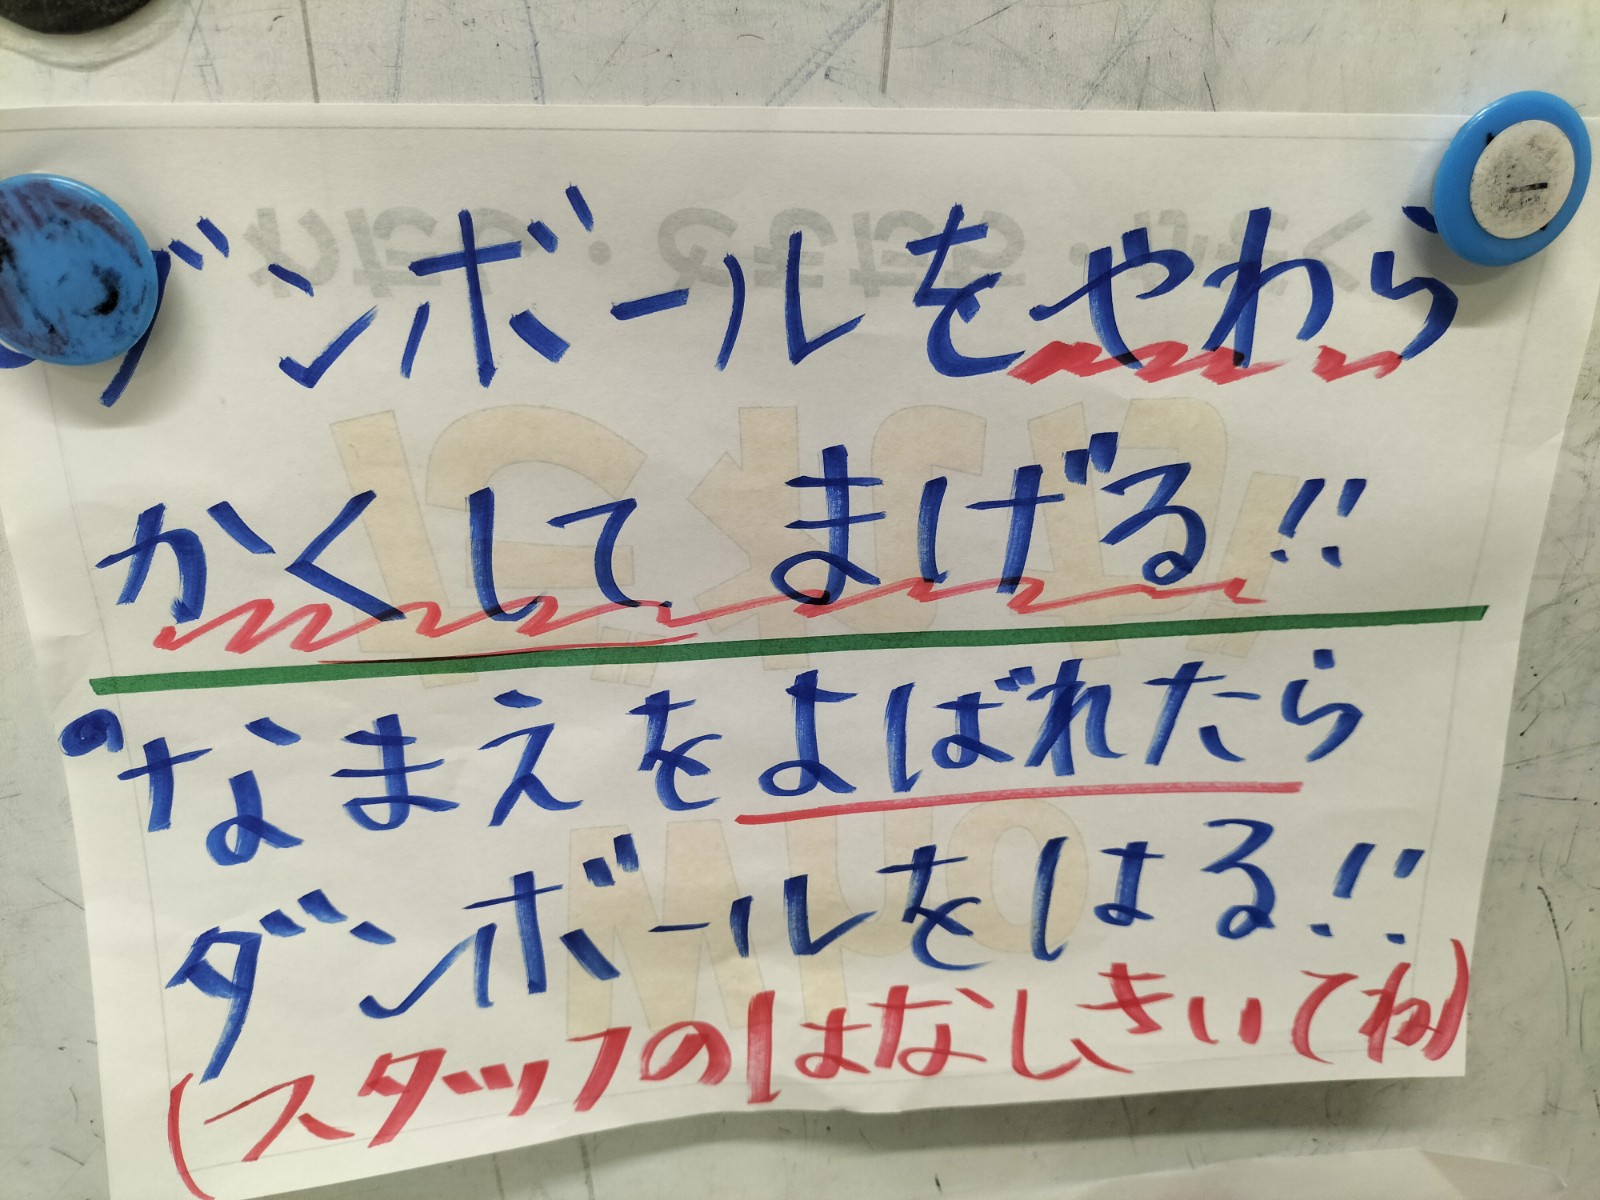 ダンボールをやわら
かくして まげる!!
・なまえをよばれたら
ダンボールをはる!!
(スタッフのはなしきいてね)